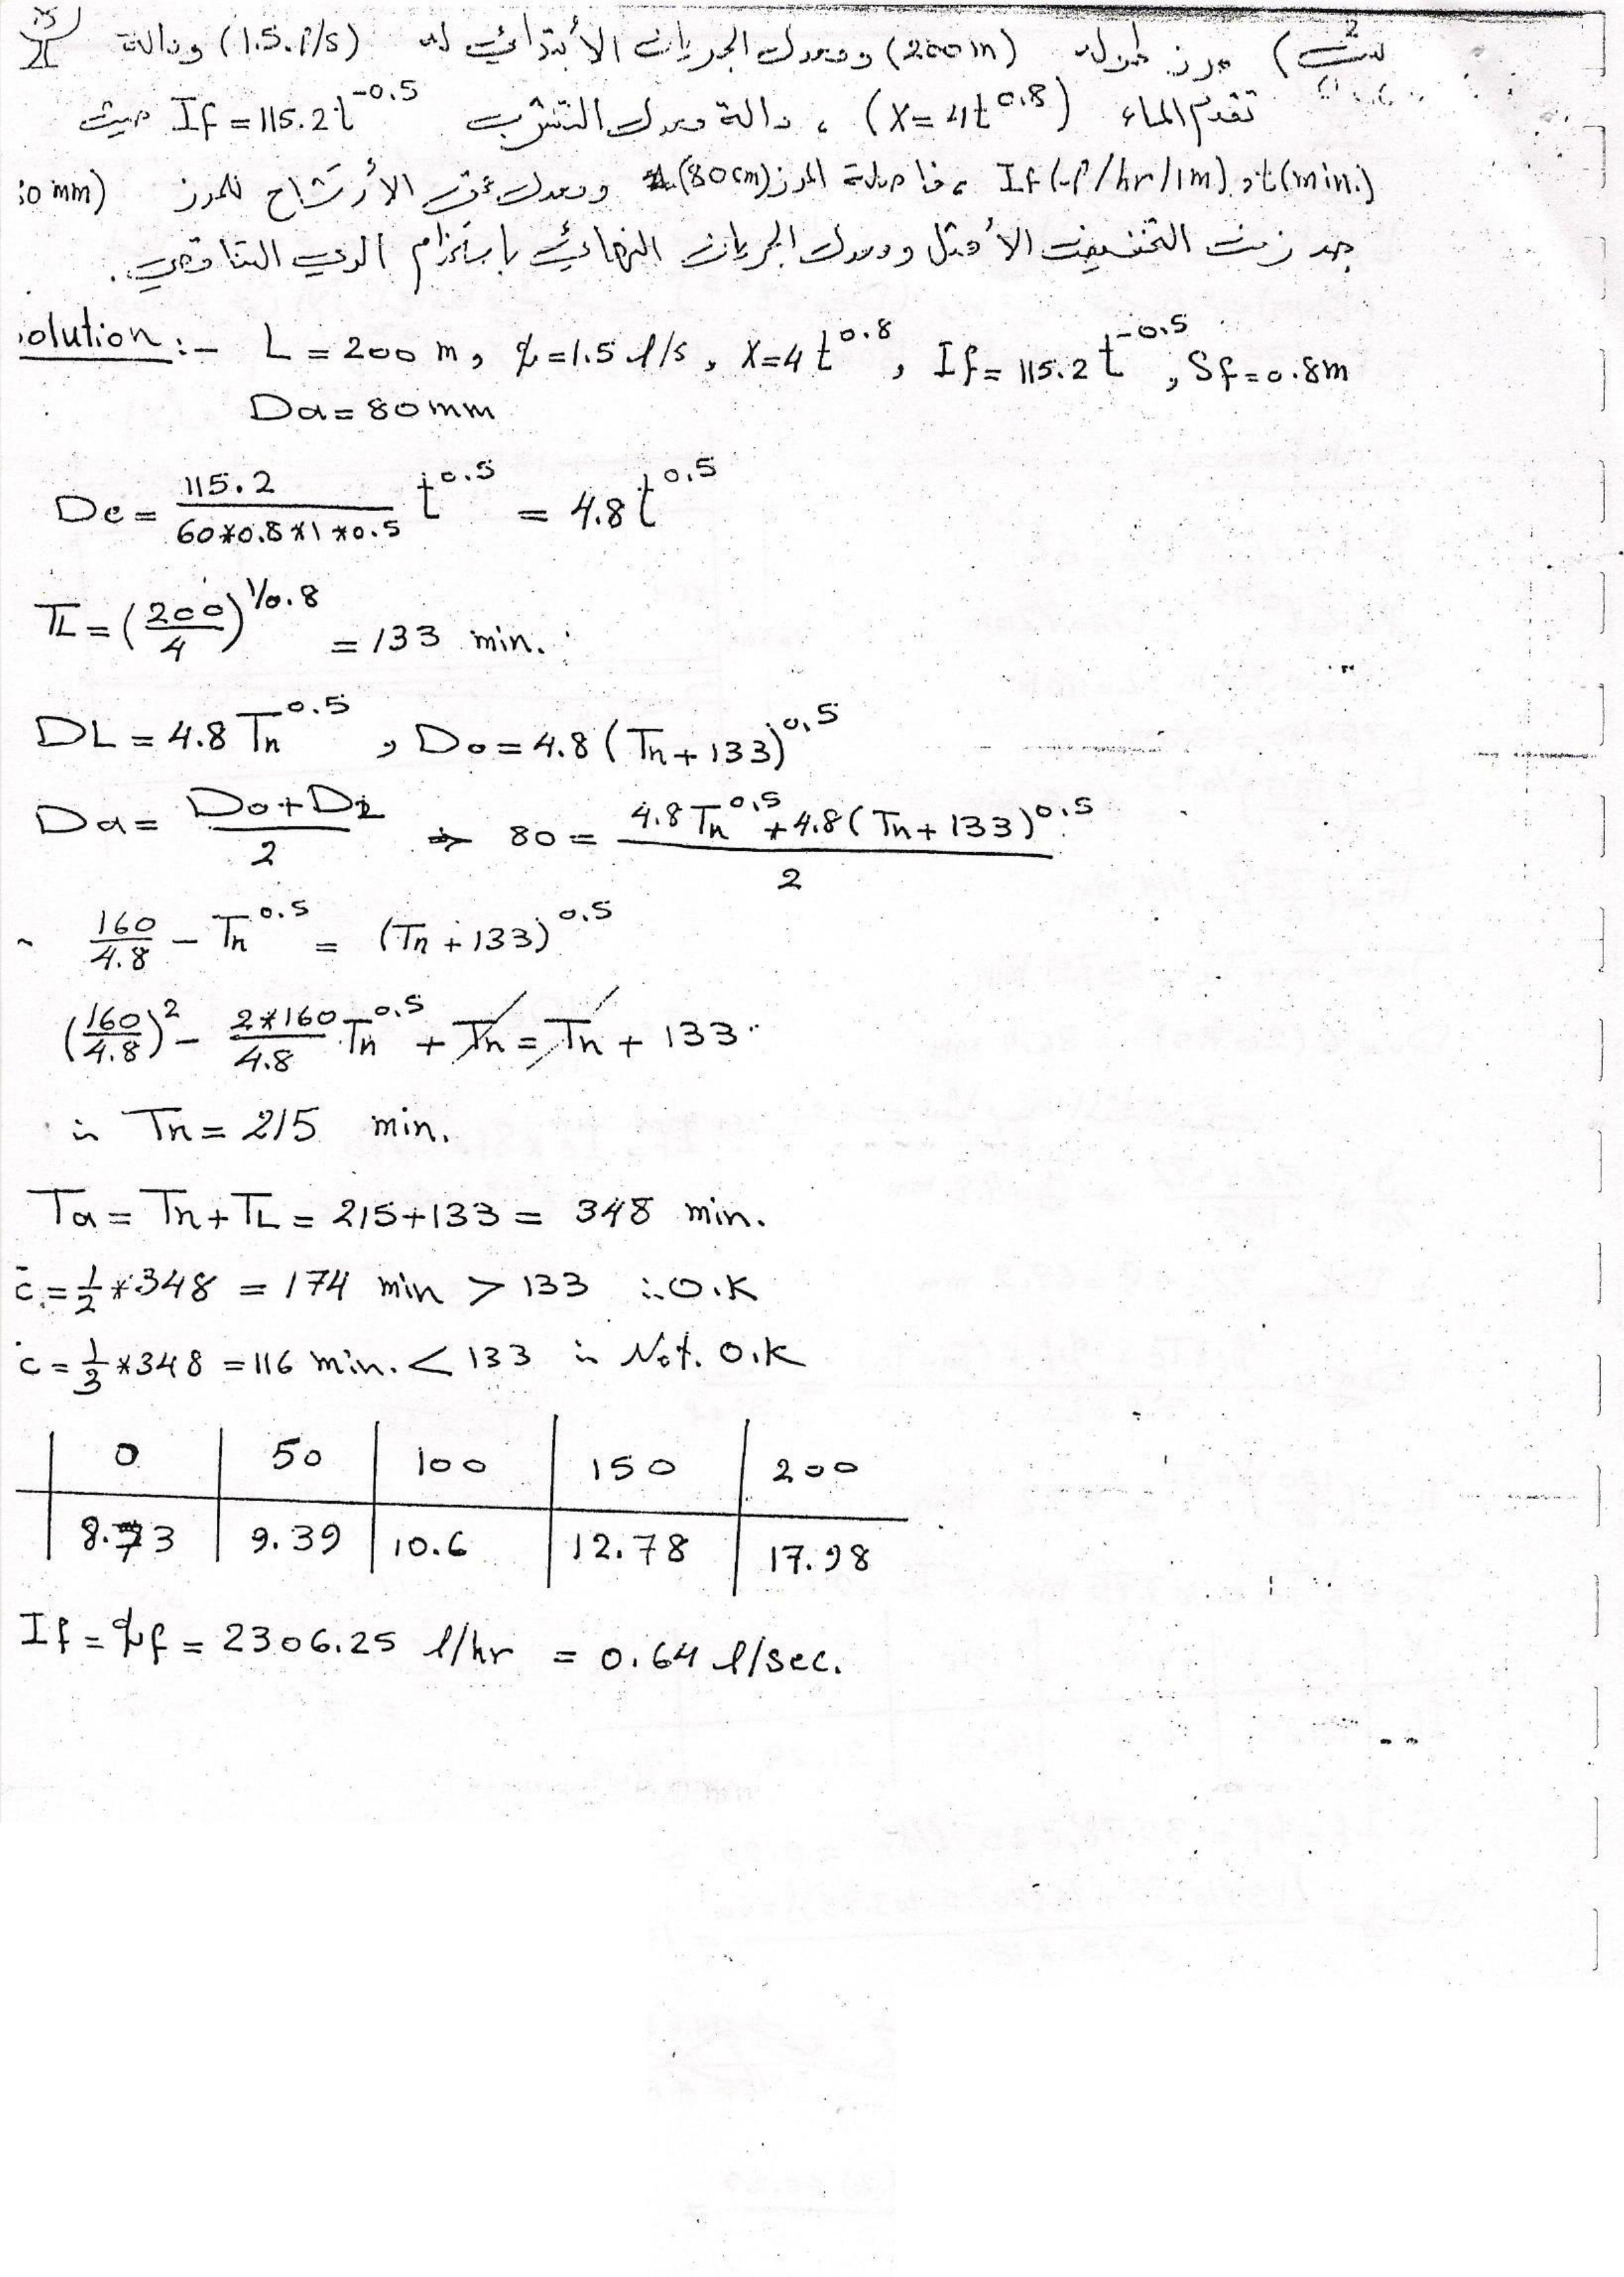 مرز طوله (200m) ومعدل الجريان الأبتدائي له (1.5 l/s) ودالة
تقدم الماء (X=4t^0.8) ، دالة معدل التشرب If=115.2t^-0.5 حيث
If(l/hr/1m), t(min.) ، فاصلة المرز (80cm) ومعدل عمق الأرشاح للمرز (80mm)
جد زمن التخفيض الأمثل ومعدل الجريان النهائي باستخدام الري التناقصي.
solution :- L=200 m, q=1.5 l/s, X=4t^0.8, If=115.2t^-0.5, Sf=0.8m
Da=80mm
Dc = 115.2/(60*0.8*1*0.5) t^0.5 = 4.8t^0.5
TL=(200/4)^1/0.8 = 133 min.
DL=4.8Tn^0.5, Do=4.8(Tn+133)^0.5
Da=(Do+DL)/2 ⇒ 80=(4.8Tn^0.5+4.8(Tn+133)^0.5)/2
160/4.8 - Tn^0.5 = (Tn+133)^0.5
(160/4.8)^2 - (2*160/4.8)Tn^0.5 + Tn = Tn + 133
∴ Tn = 215 min.
Ta=Tn+TL=215+133= 348 min.
c=1/2*348 = 174 min > 133 ∴ O.K
c=1/3*348=116 min. < 133 ∴ Not. O.K
0 50 100 150 200
8.73 9.39 10.6 12.78 17.98
If=qf= 2306.25 l/hr = 0.64 l/sec.